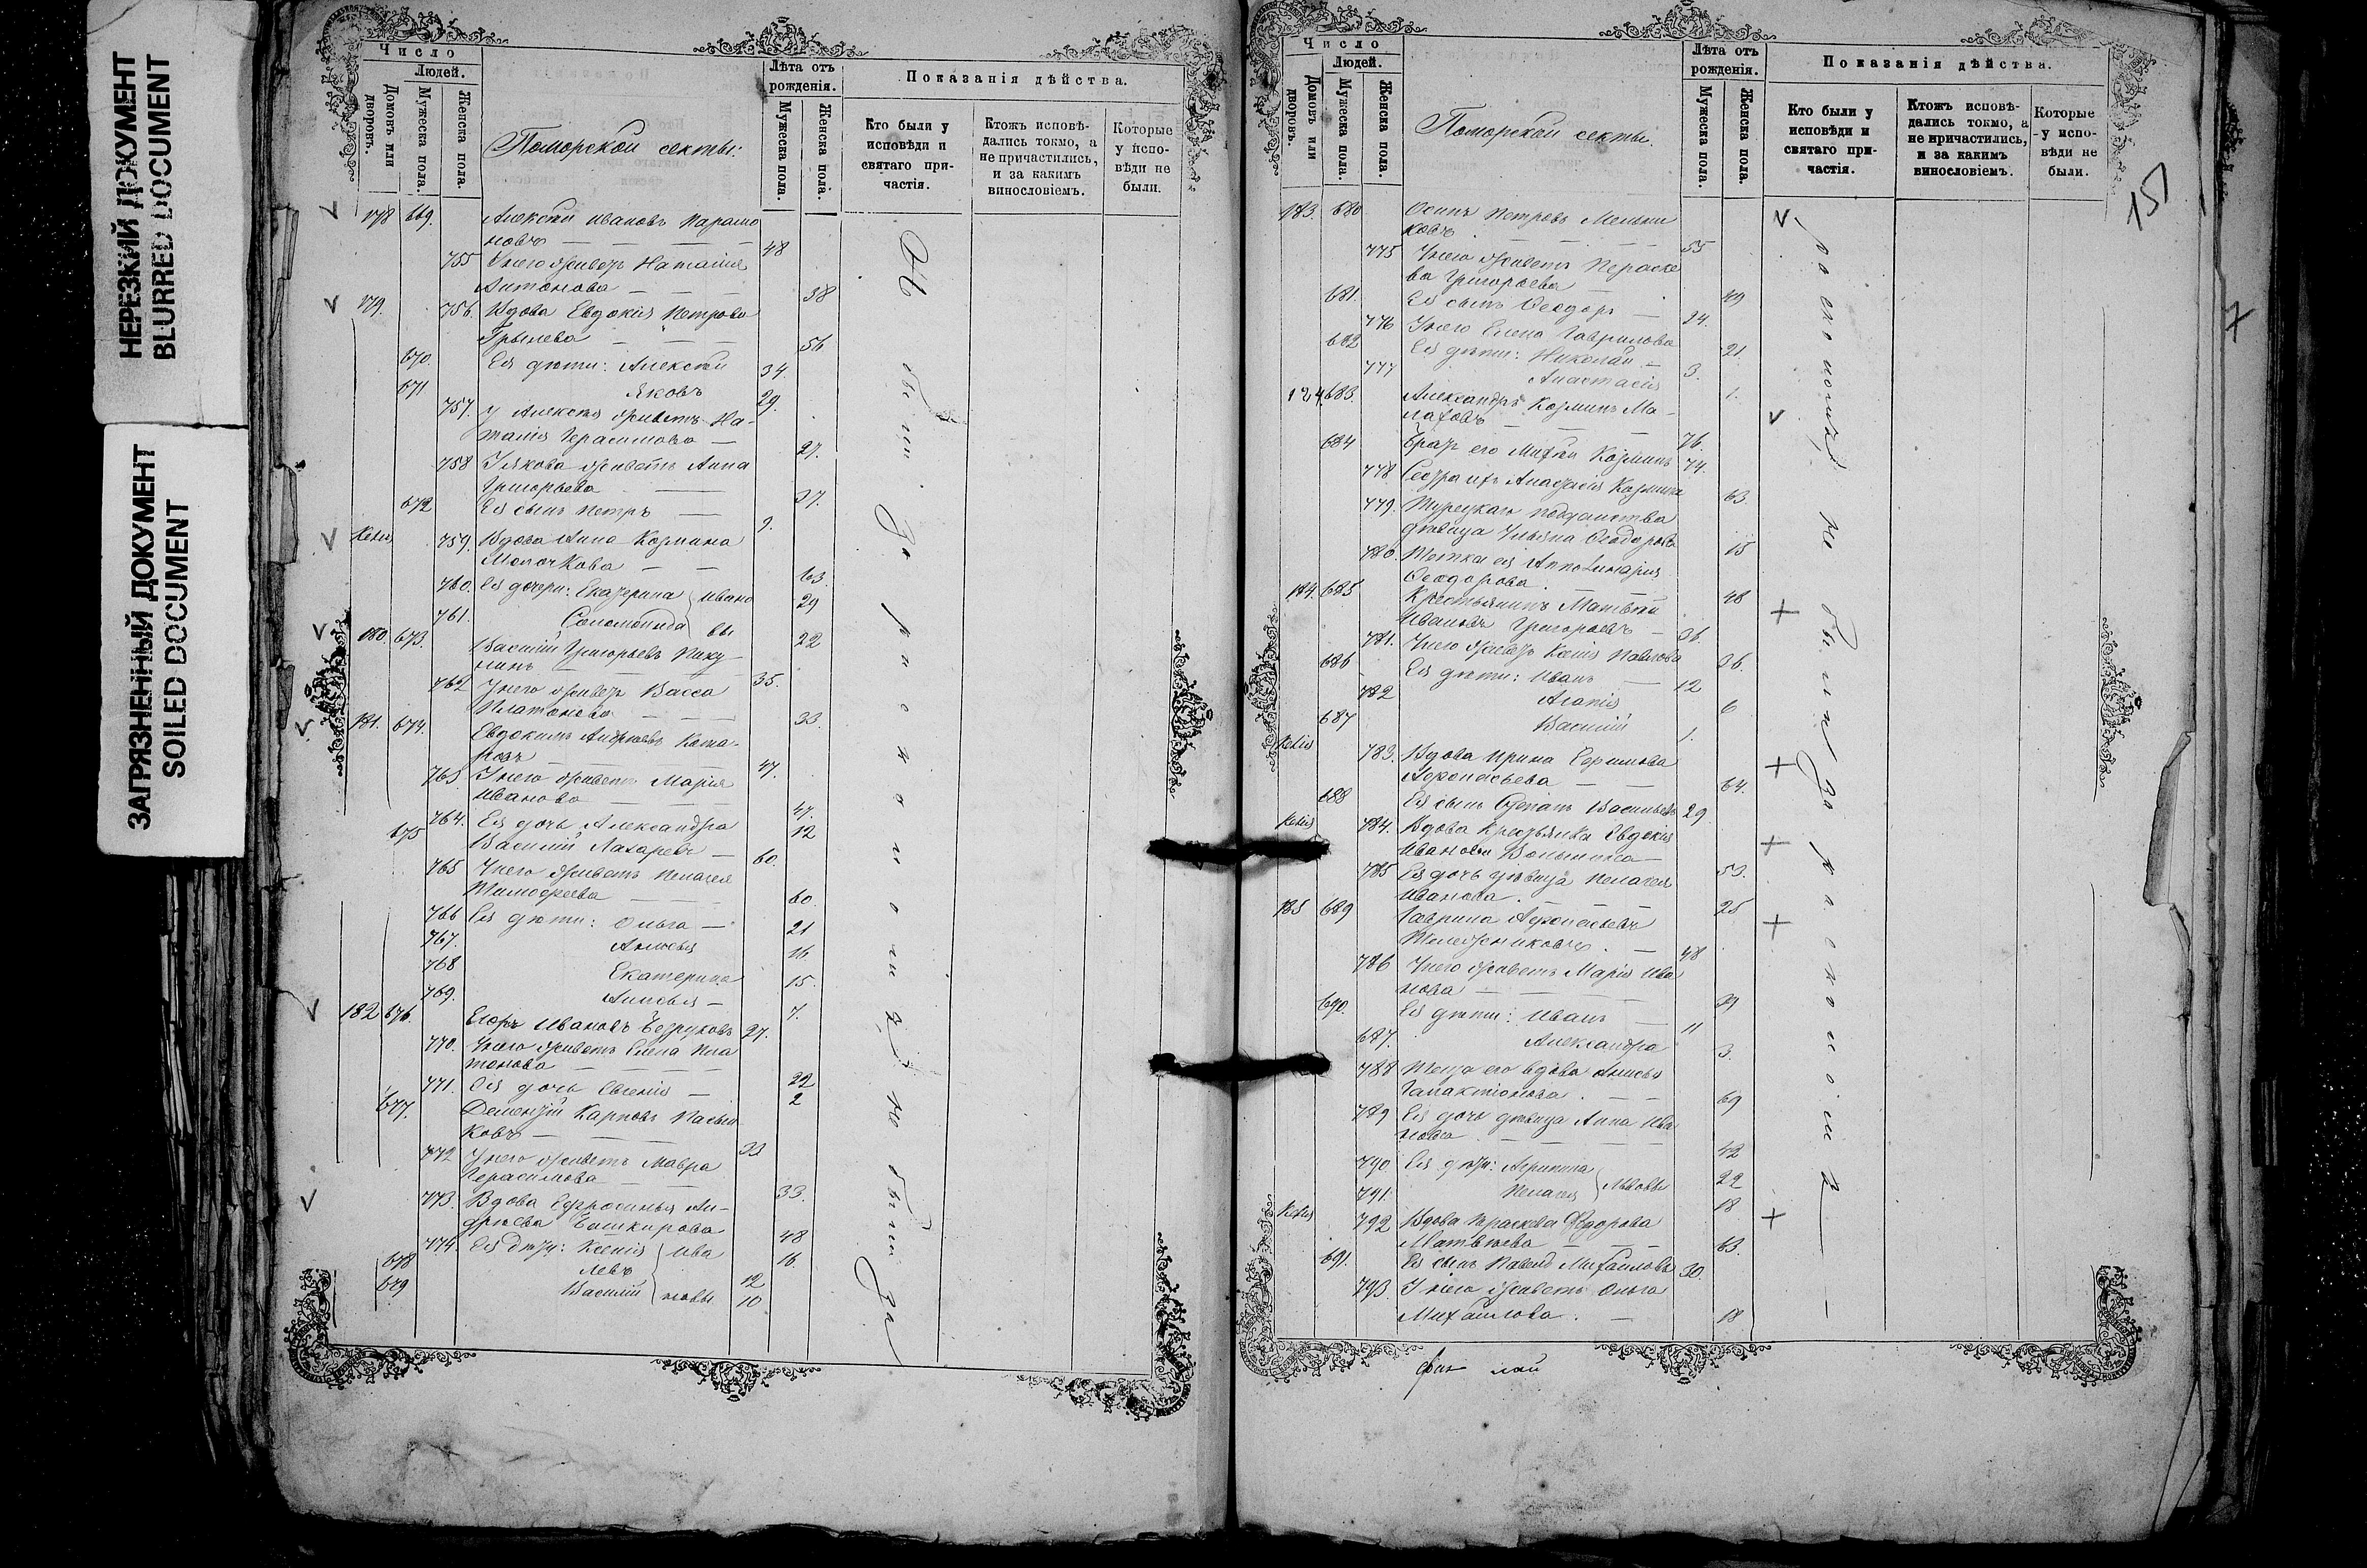 НЕРЕЗКИЙ ДОКУМЕНТ
BLURRED DOCUMENT
ЗАГРЯЗНЕННЫЙ ДОКУМЕНТ
SOILED DOCUMENT
Число
Людей.
Домовъ или дворовъ.
Мужеска пола.
Женска пола.
Поморской секты:
Лѣта отъ рожденія.
Мужеска пола.
Женска пола.
Показанія дѣйства.
Кто были у исповѣди и святаго причастія.
Ктожъ исповѣдались токмо, а не причастились, и за какимъ винословіемъ.
Которые у исповѣди не были.
178 669. Алексѣй Ивановъ Парамо
новъ 48
755 У него живетъ Наталія
Антонова 38
179. 756. Вдова Евдокія Петрова
56
670. Ея дѣти: Алексѣй 34.
671 Яковъ 29.
757. У Алексѣя живетъ На-
талія Герасимова 27.
758 У Якова живетъ Анна
Григорьева 37.
672 Ея сынъ Петръ 9.
Келія 759. Вдова Анна Козмина
Молочкова 63.
760. Ея дочери: Екатерина Ивано 29
761. Соломонида вы 22
180. 673. Василій Григорьевъ Пику
линъ 35.
762 У него живетъ Васса
Платонова 33.
181. 674. Евдокимъ Андреевъ Кома-
ровъ 47.
763 У него живетъ Марія
Иванова 47.
764. Ея дочь Александра 12
675 Василій Лазаревъ 60.
765 У него живетъ Пелагея
Тимофеева 60.
766 Ея дѣти: Ольга 21
767. Анисья 16
768 Екатерина 15.
769. 7.
182 676. Егоръ Ивановъ Безруковъ 27.
770. У него живетъ Елена Пла
тонова 22
771. Ея дочь Евгенія 2
677. Дементій Карповъ
ковъ 33
772 У него живетъ Мавра
Герасимова 33.
773. Вдова Ефросинья Ан-
дреева Башкирова 48
774. Ея дѣти: Ксенія Ива 16.
678 Левъ 12
679 Василій новы 10
Число
Людей.
Домовъ или дворовъ.
Мужеска пола.
Женска пола.
Поморской секты.
Лѣта отъ рожденія.
Мужеска пола.
Женска пола.
Показанія дѣйства.
Кто были у исповѣди и святаго причастія.
Ктожъ исповѣдались токмо, а не причастились, и за какимъ винословіемъ.
Которые у исповѣди не были.
151
183. 680 Осипъ Петровъ Мельни
ковъ 55
775 У него живетъ Параске
ва Григорьева 49
681. Ея сынъ Ѳеодоръ 24.
776 У него Елена Гаврилова 21.
682 Ея дѣти: Николай 3.
777 Анастасія 1.
683. Александръ Козминъ Ма-
лаховъ 76.
684 Братъ его Михей Козминъ 74.
778 Сестра ихъ Анастасія Козмина 63.
779. Турецкаго подданства
дѣвица Ульяна Ѳеодорова 15
780. Тетка ея Апполинарія
Ѳеодорова 48
184. 685 Крестьянинъ Матвѣй
Ивановъ Григорьевъ 36.
781. У него живетъ Ксенія Павлова 36.
686 Ея дѣти: Иванъ 12
782 Агапія 6
687 Василій 1.
Келія 783. Вдова Ирина Ефимова
Афонасьева 64.
688 Ея сынъ Степанъ Васильевъ 29.
Келія 784. Вдова крестьянка Евдокія
Иванова 53.
785 Ея дочь дѣвица Пелагея
Иванова. 25
185 689 Гаврила Афонасьевъ
Тележенковъ. 48
786 У него живетъ Марія Ива
нова 39
690. Ея дѣти: Иванъ 11
687. Александра 3.
788 Теща его вдова Анисья
Галактіонова. 69
789 Ея дочь дѣвица Анна Ива
нова 42
790 Ея дѣти: Агрипина Львовы 22
791. Пелагея 18
Келія 792 Вдова Параскева Ѳедорова
Матвѣева 63.
691. Ея сынъ Павелъ Михайловъ 30.
793. У него живетъ Ольга
Михайлова. 18